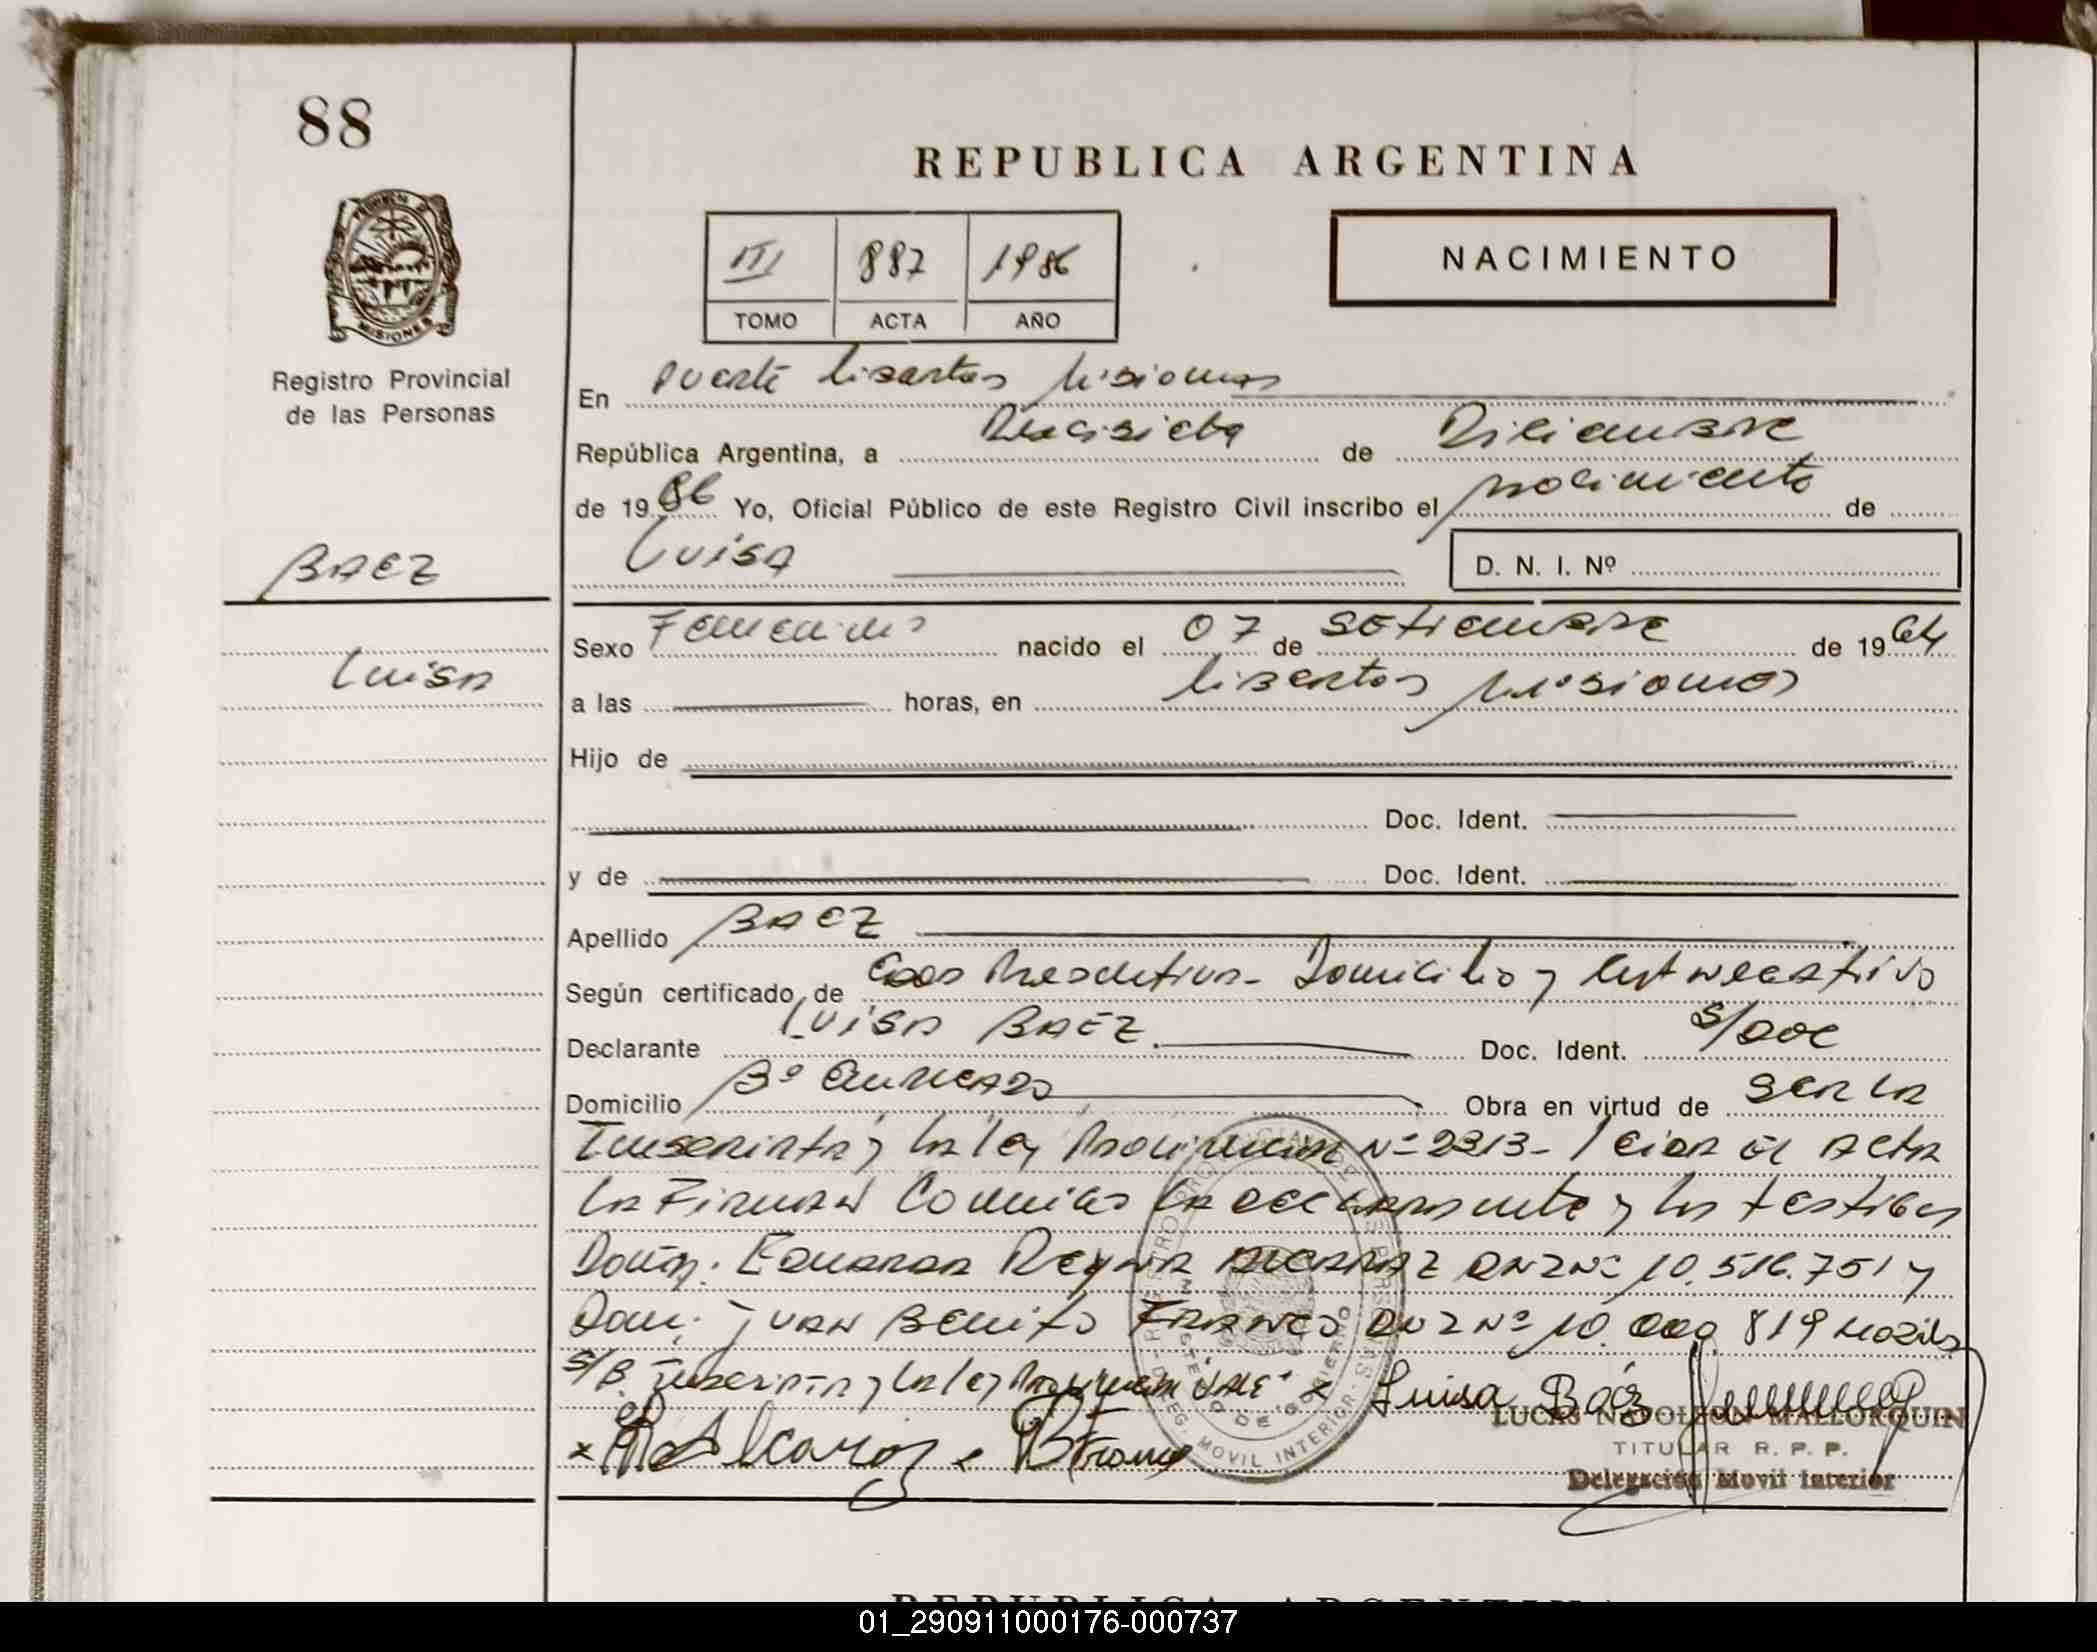 88
REPUBLICA ARGENTINA
III 887 1986
TOMO ACTA AÑO
NACIMIENTO
MISIONES
Registro Provincial
de las Personas
En Puerto Libertad Misiones
República Argentina, a Diecisiete de Diciembre
de 1986 Yo, Oficial Público de este Registro Civil inscribo el nacimiento de
Luisa
D. N. I. Nº
BAEZ
Luisa
Sexo Femenino nacido el 07 de Setiembre de 1964
a las horas, en Libertad Misiones
Hijo de
Doc. Ident.
y de Doc. Ident.
Apellido BAEZ
Según certificado de Domicilio y
Declarante Luisa BAEZ. Doc. Ident. S/Doc
Domicilio Bº Obra en virtud de ser la
Inscripta y la ley Provincial Nº 2313- leida el Acta
la Firman Conmigo la declarante y los testigos
Eduarda Reyna Alcaraz DNI Nº 10.516.751 y
Juan Benito Franco DNI Nº 10.000.819
S/B. Inscripta y la ley Provincial Vale Luisa Báez
LUCAS NAPOLEON MALLORQUIN
TITULAR R. P. P.
Delegación Movil Interior
x Alcaraz x B Franco
REPUBLICA ARGENTINA
01_290911000176-000737